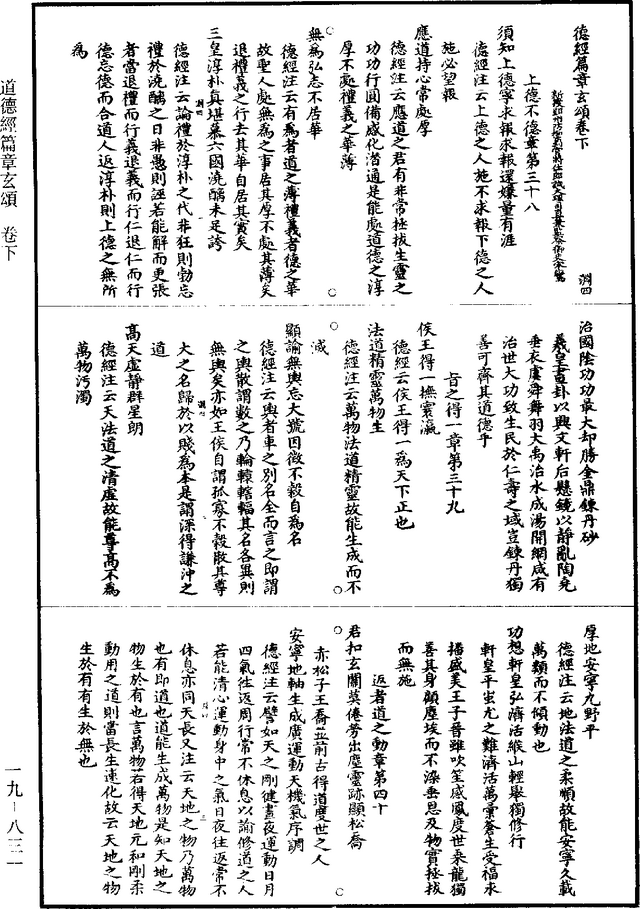 道德經篇章玄頌 卷下
一九-八三二
德經篇章玄頌卷下 淵四
上德不德章第三十八
須知上德寧求報求報還嫌量有涯
德經注云上德之人施不求報下德之人
施必望報
應道持心常處厚
德經注云應道之君有非常極拔生靈之
功功行圓備感化潛通是能處道德之淳
厚不處禮義之華薄
無為弘志不居華
德經注云有為者道之薄禮義者德之華
故聖人處無為之事居其厚不處其薄矣
退禮義之行去其華自居其實矣
三皇淳朴真堪慕六國澆醨未足誇
德經注云論禮於淳朴之代非狂則勃忘
禮於澆醨之日非愚則誣若能解而更張
者當退禮而行義退義而行仁退仁而行
德忘德而合道人返淳朴則上德之無所
為
治國陰功功最大却勝金鼎鍊丹砂
羲皇畫卦以興文軒后懸鏡以靜亂陶堯
垂衣虞舜舞羽大禹治水成湯開網咸有
治世大功致生民於仁壽之域豈鍊丹獨
善可齊其道德乎
昔之得一章第三十九
侯王得一撫寰瀛
德經云侯王得一為天下正也
法道精靈萬物生
德經注云萬物法道精靈故能生成而不
滅
顯諭無輿忘大號因微不穀自為名
德經注云輿者車之別名全而言之即謂
之輿散謂數之乃輪轅轄輻其名各異則
無輿矣亦如王侯自謂孤寡不穀散其尊
大之名歸於以賤為本是謂深得謙沖之
道
高天虛靜群星朗
德經注云天法道之清虛故能尊高不為
萬物污濁
厚地安寧九野平
德經注云地法道之柔順故能安寧久載
萬類而不傾動也
功想軒皇弘濟活緱山輕舉獨修行
軒皇平蚩尤之難濟活萬彙蒼生受福永
播盛美王子晉雖吹笙感鳳度世乘龍獨
善其身顧塵埃而不染垂恩及物實拯拔
而無施
返者道之動章第四十
君扣玄關莫倦勞出塵靈跡顯松喬
赤松子王喬並前古得道度世之人
安寧地軸生成廣運動天機氣序調
德經注云譬如天之剛健晝夜運動日月
四氣往返周行常不休息以諭修道之人
若能清心運動身中之氣日夜往返常不
休息亦同天長又注云天地之物乃萬物
也有即道也道能生成萬物是知天地之
物生於有也言萬物若得天地元和剛柔
動用之道則當長生連化故云天地之物
生於有有生於無也